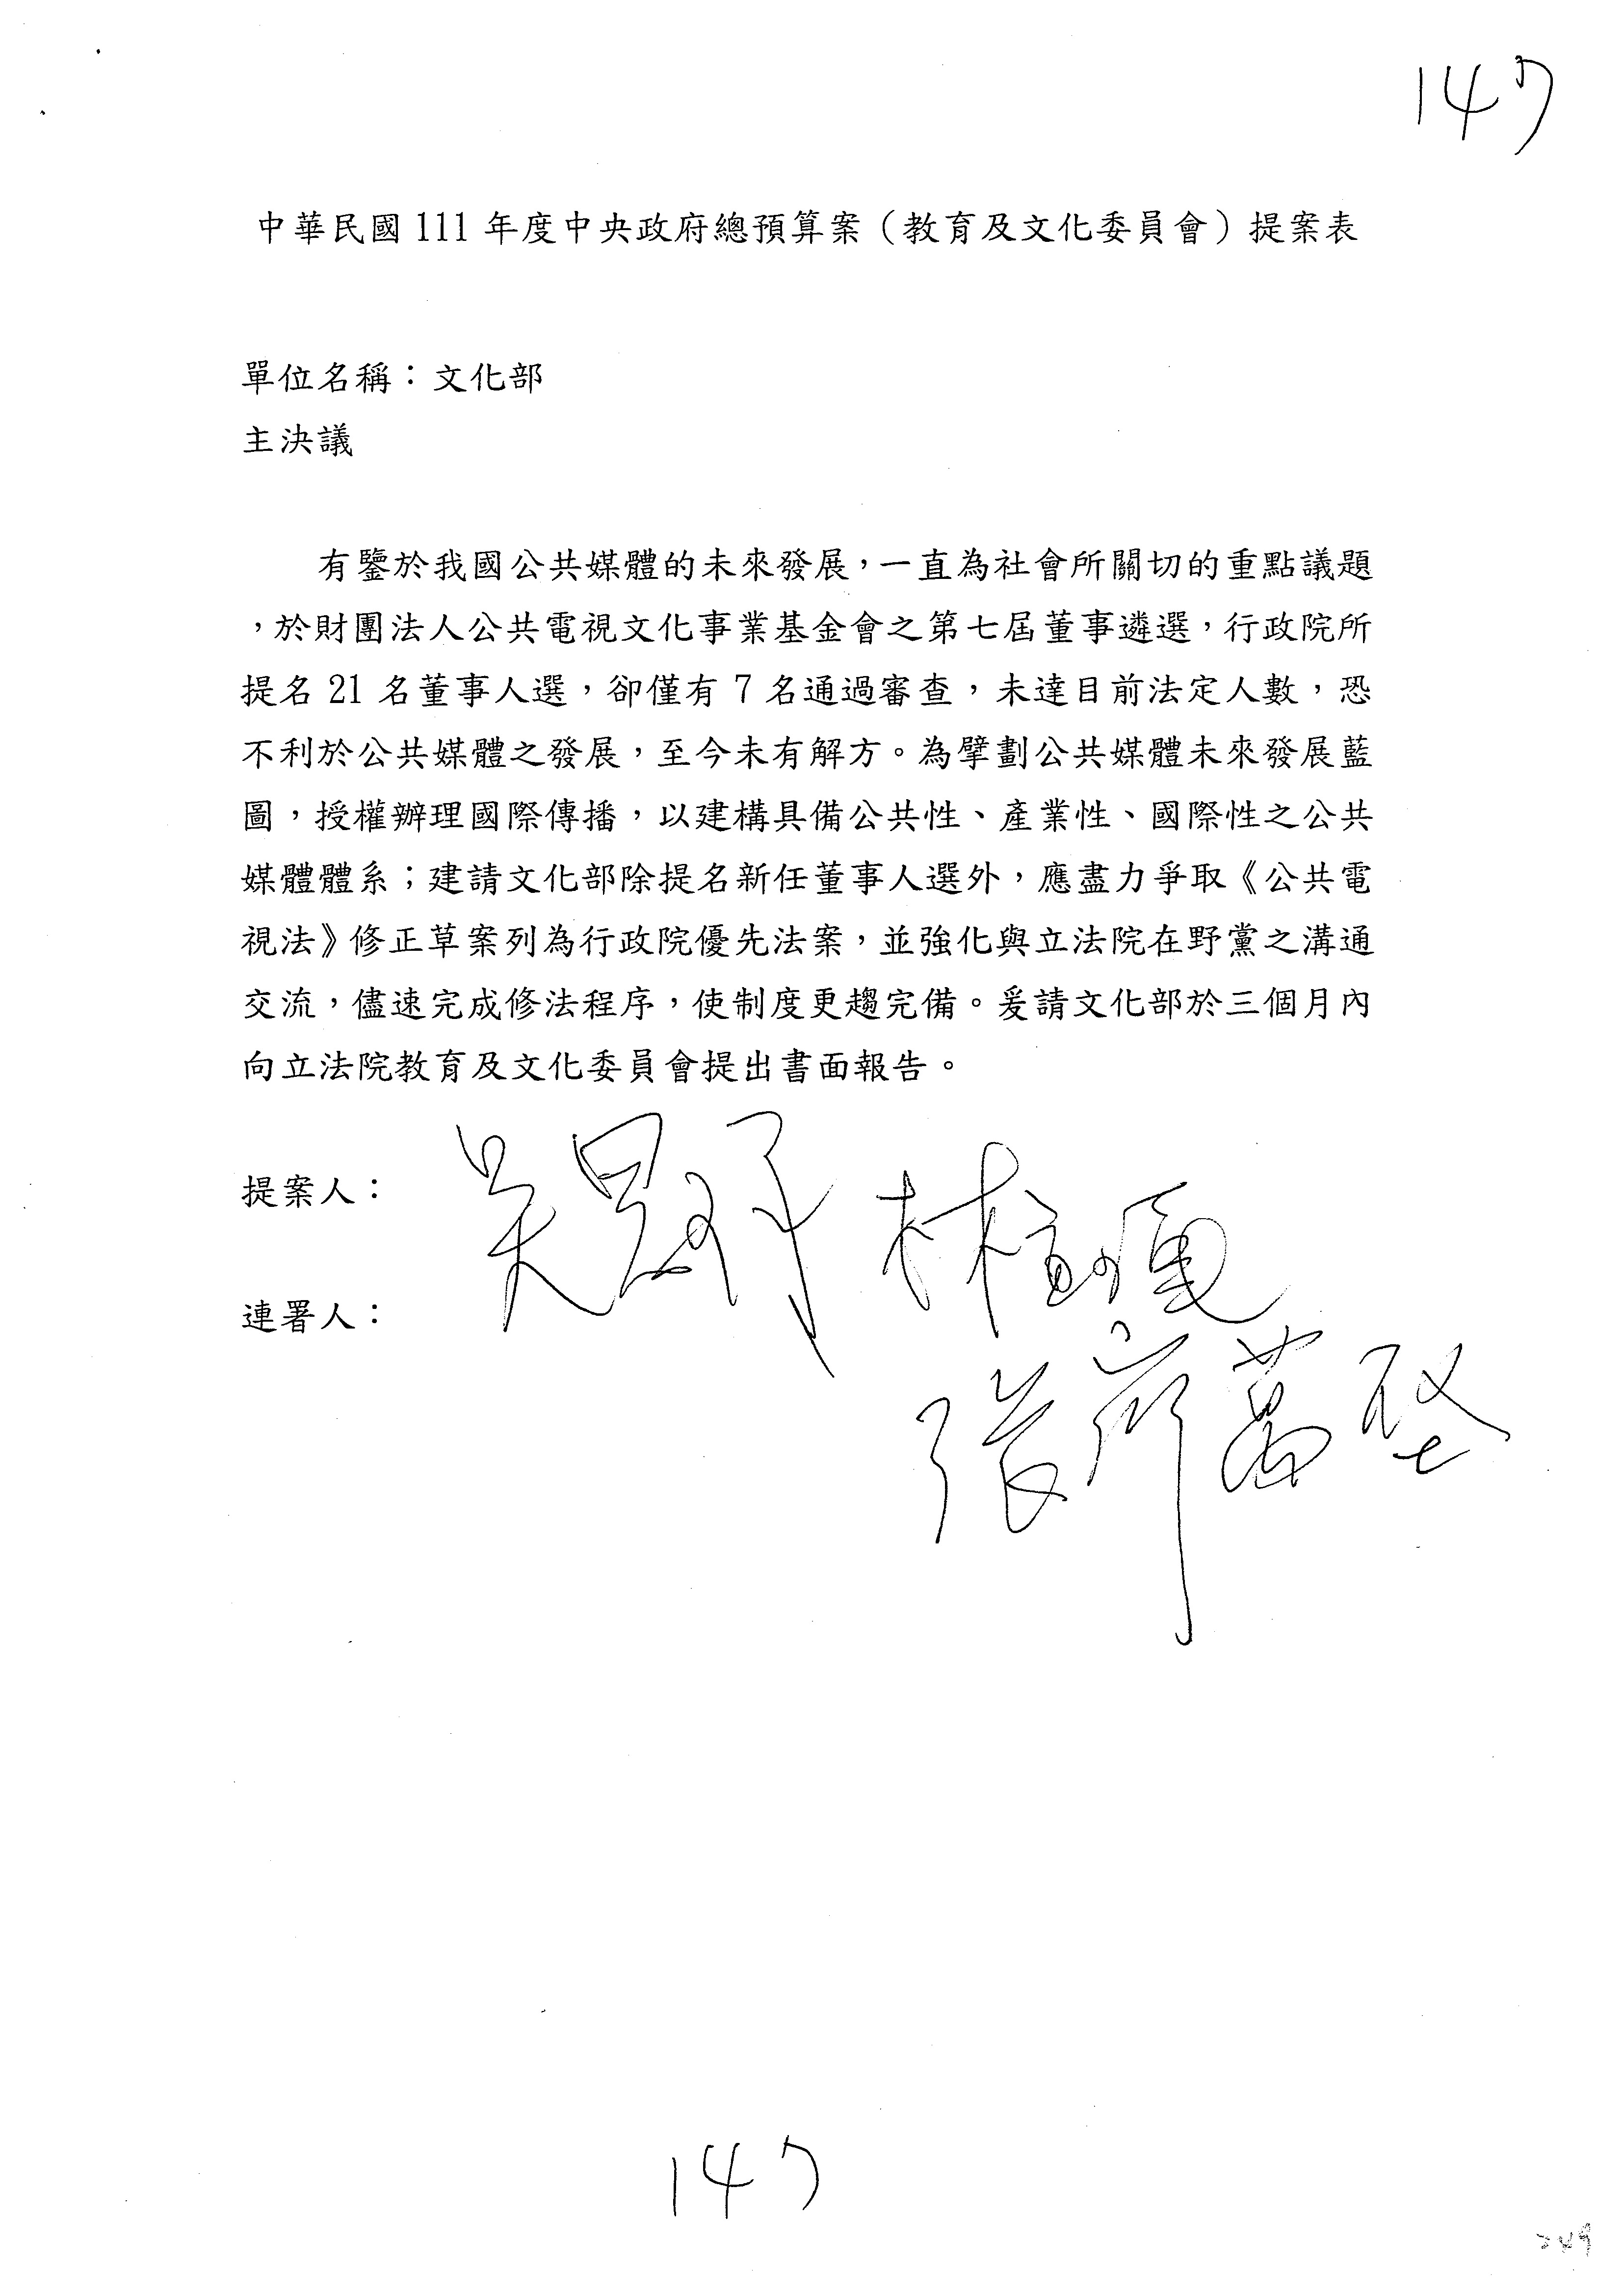 147
中華民國 111 年度中央政府總預算案（教育及文化委員會）提案表
單位名稱：文化部
主決議
有鑒於我國公共媒體的未來發展，一直為社會所關切的重點議題
，於財團法人公共電視文化事業基金會之第七屆董事遴選，行政院所
提名 21 名董事人選，卻僅有 7 名通過審查，未達目前法定人數，恐
不利於公共媒體之發展，至今未有解方。為擘劃公共媒體未來發展藍
圖，授權辦理國際傳播，以建構具備公共性、產業性、國際性之公共
媒體體系；建請文化部除提名新任董事人選外，應盡力爭取《公共電
視法》修正草案列為行政院優先法案，並強化與立法院在野黨之溝通
交流，儘速完成修法程序，使制度更趨完備。爰請文化部於三個月內
向立法院教育及文化委員會提出書面報告。
提案人：
吳思瑤
連署人：
張廖萬堅
147